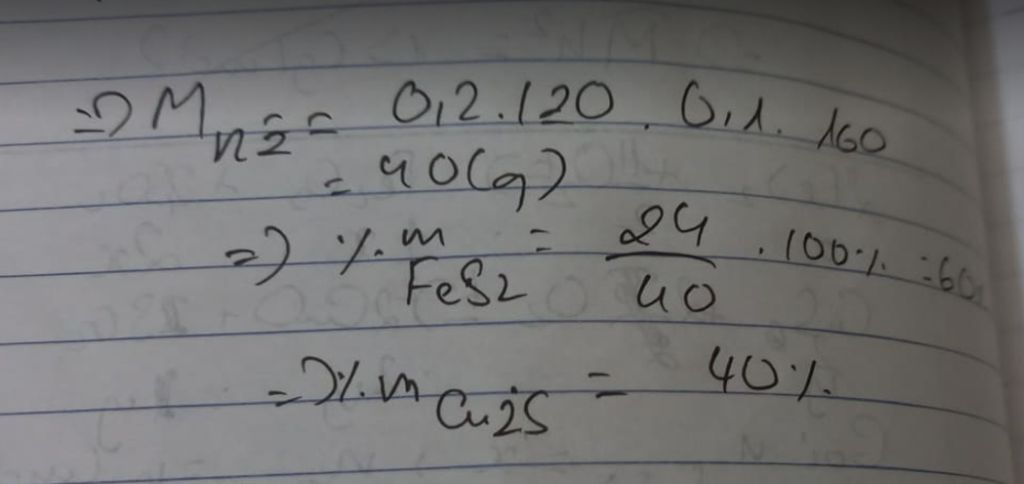 => M hh = 0,2.120 . 0,1. 160
= 40(g)
=> %m FeS2 = 24/40 . 100% = 60
=> %m Cu2S = 40%